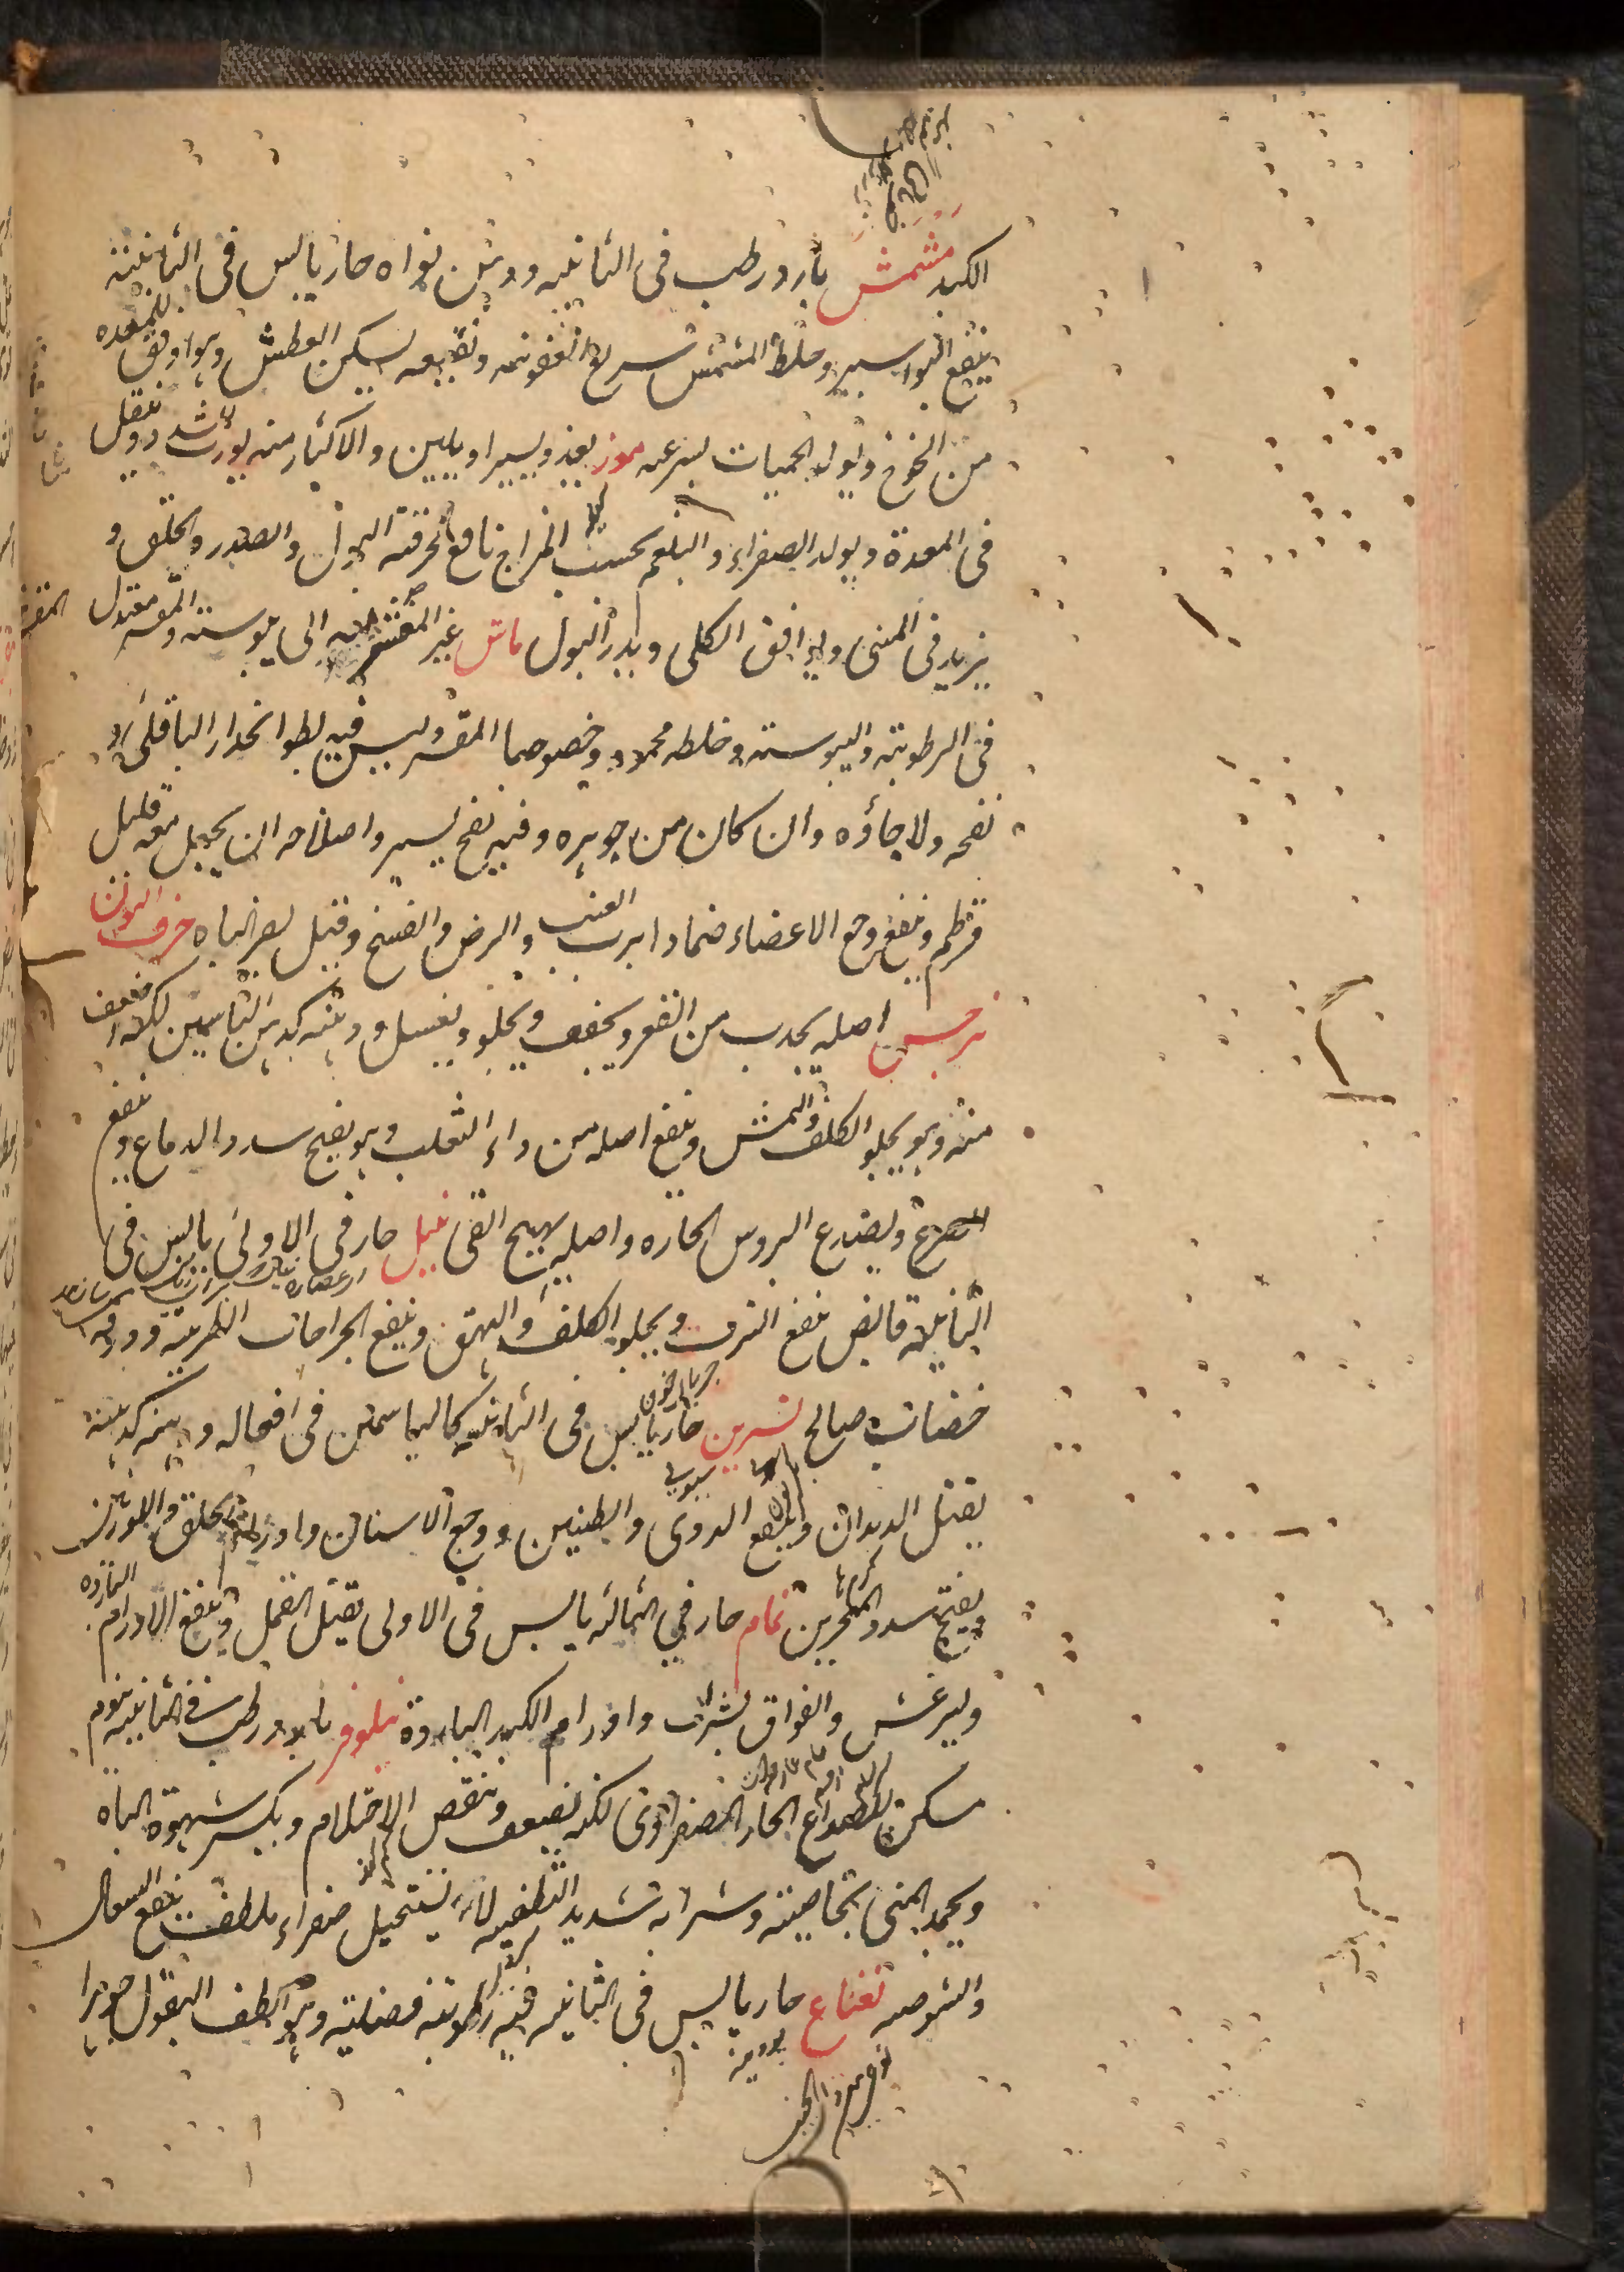 الكبد مشمش بارد رطب فى الثانيه ودهن نواه حار يابس فى الثانية
ينفع البواسير وخلط المشمش سريع العفونه ونقيعه يسكن العطش وهو اوفق للمعده
من الخوخ ويولد الحميات بسرعه موز يغذو يسيرا ويلين والاكثار منه يورث السدد ويثقل
فى المعدة ويولد الصفراء والبلغم بحسب المزاج نافع لحرقة البول والصدر والحلق و
يزيد فى المنى ويوافق الكلى ويدر البول ماش غير المقشر الى يبوسته والمقشر معتدل
فى الرطوبة واليبوسته وخلطه محمود وخصوصا المقشر وليس فيه بطوء انحدار الباقلى ولا
نفخه ولا جلاؤه وان كان من جوهره وفيه نفخ يسير واصلاحه ان يجعل معه قليل
قرطم وينفع وجع الاعضاء ضمادا برب العنب والرض والفسخ وقيل يضر الباه حرف النون
نرجس اصله يجذب من القعر ويجفف ويجلو ويغسل ودهنه كدهن الياسمين لكنه اضعف
منه وهو يجلو الكلف والنمش وينفع اصله من داء الثعلب وهو يفتح سدد الدماغ وينفع
الصرع ويصدع الروس الحاره واصله يهيج القى نيل حار فى الاولى يابس فى
الثانية قابض ينفع النزف ويجلو الكلف والبهق وينفع الجراحات الطرية وورقه
خضاب صالح نسرين حار يابس فى الثانيه كالياسمين فى افعاله ودهنه كدهنه
يقتل الديدان وينفع الدوى والطنين ووجع الاسنان واورام الحلق واللوزتين
ويفتح سدد المنخرين نمام حار في الثالثه يابس فى الاولى يقتل القمل وينفع الاورام الباردة
وليرغس والفواق شربا واورام الكبد الباردة نيلوفر بارد رطب فى الثانيه منوم
مسكن للصداع الحار الصفراوى لكنه يضعف وينقص الاحتلام ويكسر شهوة الباه
ويجمد المنى بخاصيته وشرابه شديد التطفيه لا يستحيل صفراء ملطف ينفع السعال
والشوصه نعناع حار يابس فى الثانيه فيه رطوبة فضلية وهو الطف البقول جوهرا